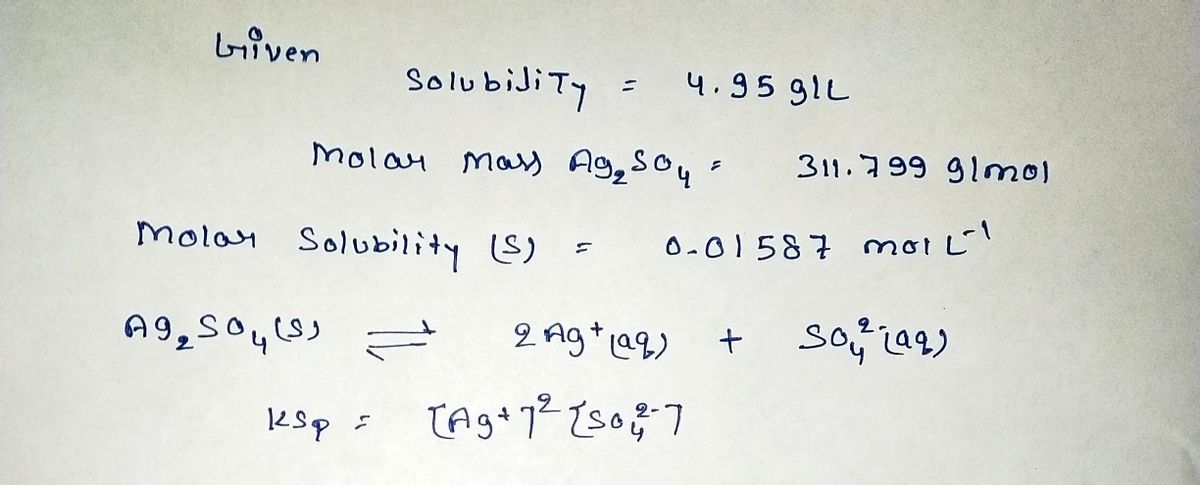 Given
Solubility = 4.95 g/L
Molar mass Ag₂SO₄ = 311.799 g/mol
Molar Solubility (S) = 0.01587 mol L⁻¹
Ag₂SO₄(s) ⇌ 2 Ag⁺(aq) + SO₄²⁻(aq)
Ksp = [Ag⁺]² [SO₄²⁻]